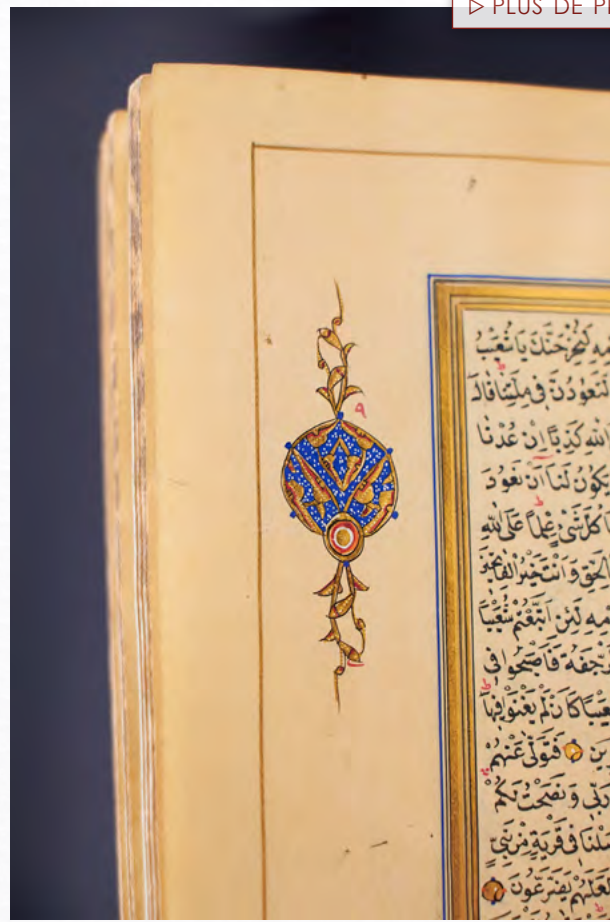 ▷ PLUS DE P
٩
مِهِ لَنُخْرِجَنَّكَ يَا شُعَيْبُ
لَتَعُودُنَّ فِي مِلَّتِنَا قَالَ
اللهِ كَذِبًا اِنْ عُدْنَا
يَكُونُ لَنَا اَنْ نَعُودَ
ا كُلَّ شَيْءٍ عِلْمًا عَلَى اللهِ
الْحَقِّ وَاَنْتَ خَيْرُ الْفَاتِحِينَ
مِهِ لَئِنِ اتَّبَعْتُمْ شُعَيْبًا
لرَّجْفَةُ فَاَصْبَحُوا فِي
عَيْبًا كَاَنْ لَمْ يَغْنَوْا فِيهَا
رِينَ فَتَوَلّٰى عَنْهُمْ
رَبِّي وَنَصَحْتُ لَكُمْ
سَلْنَا فِي قَرْيَةٍ مِنْ نَبِيٍّ
لَعَلَّهُمْ يَضَّرَّعُونَ